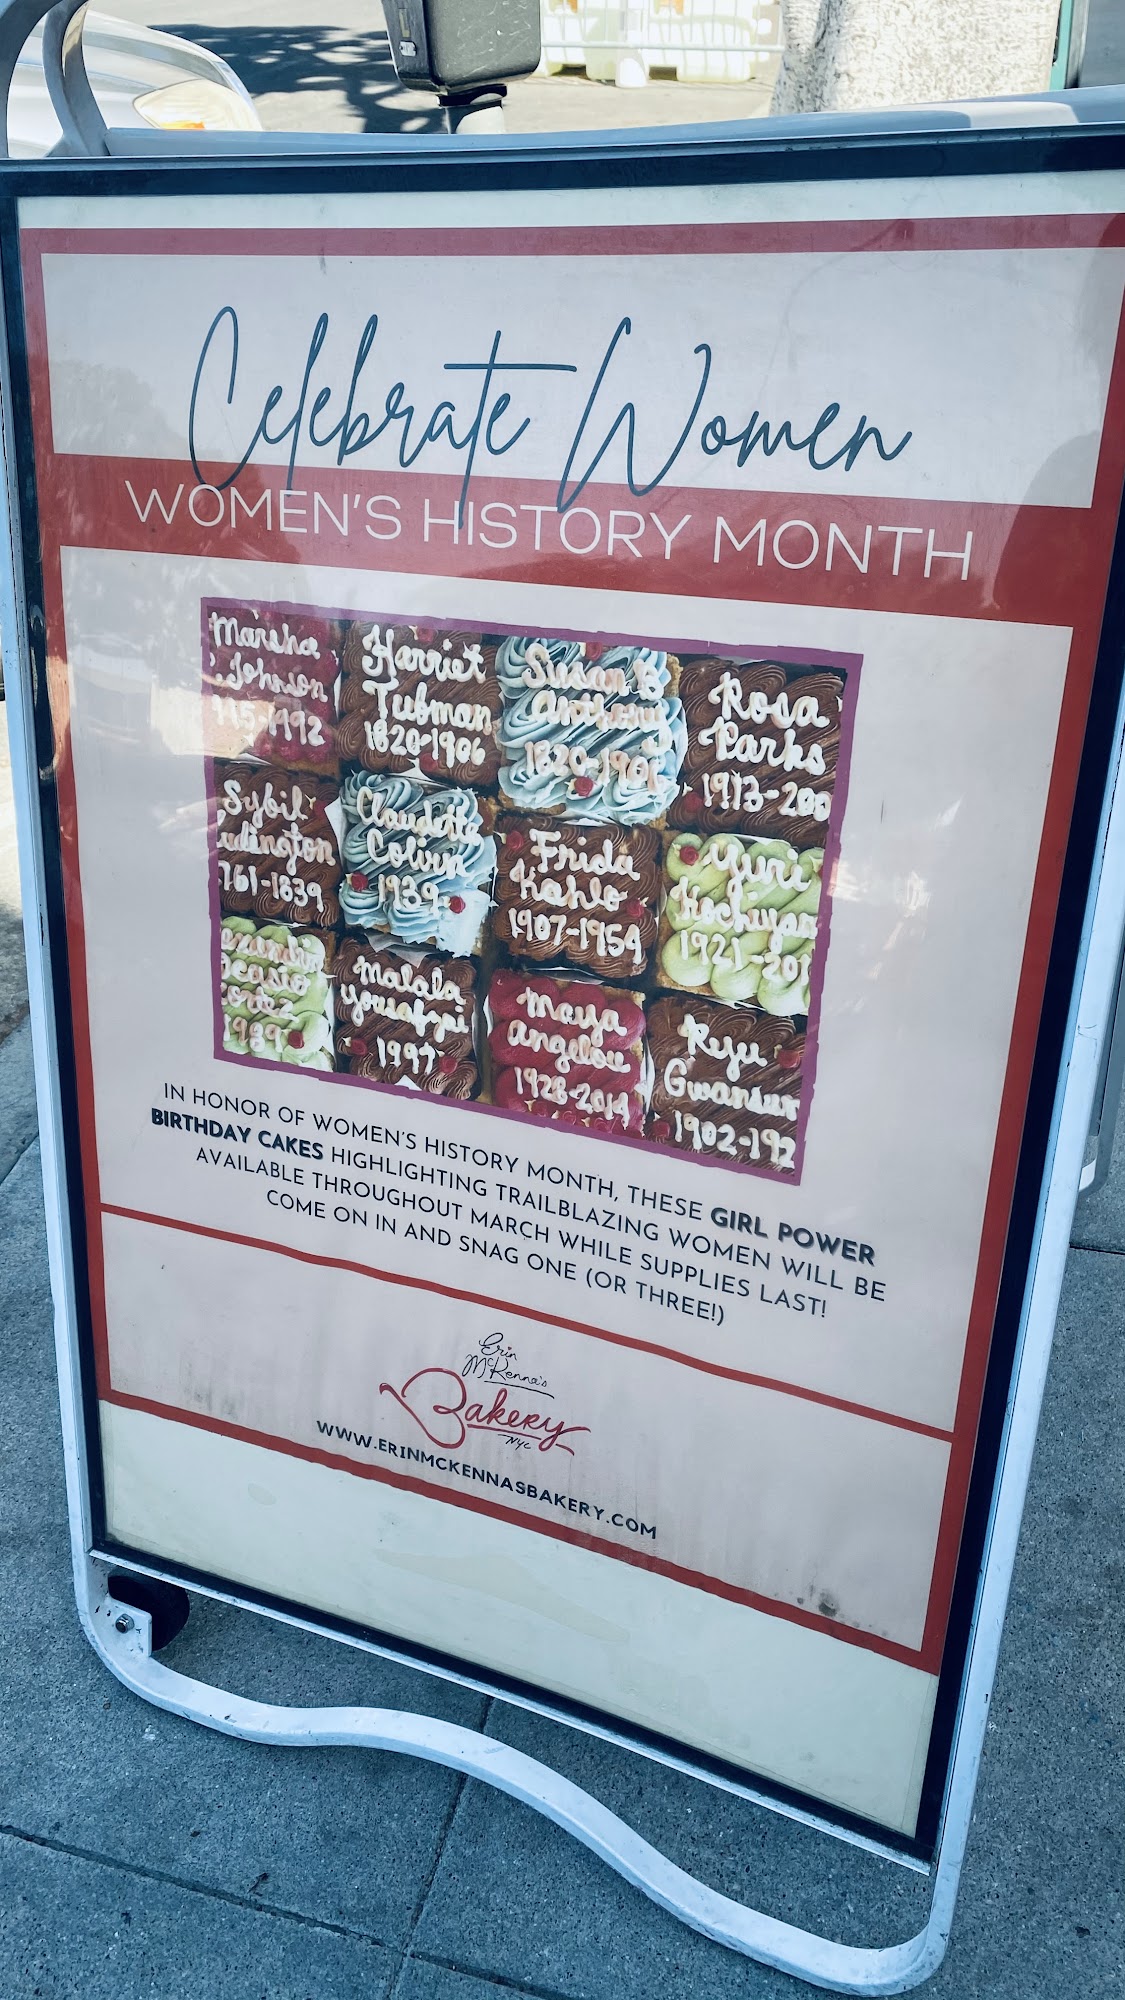 Celebrate Women
WOMEN'S HISTORY MONTH
Marsha
Johnson
1992
Harriet
Tubman
1820-1906
Susan B
Anthony
1820-1906
Rosa
Parks
1913-200
Sybil
udington
761-1839
Claudette
Colvin
1939
Frida
Kahlo
1907-1954
Yuri
Kochiyam
1921-201
casio
ortez
1989
Malala
Yousafzai
1997
Maya
Angelou
1928-2014
Ryu
Gwansun
1902-192
IN HONOR OF WOMEN'S HISTORY MONTH, THESE GIRL POWER
BIRTHDAY CAKES HIGHLIGHTING TRAILBLAZING WOMEN WILL BE
AVAILABLE THROUGHOUT MARCH WHILE SUPPLIES LAST!
COME ON IN AND SNAG ONE (OR THREE!)
Erin
McKenna's
Bakery
NYC
WWW.ERINMCKENNASBAKERY.COM